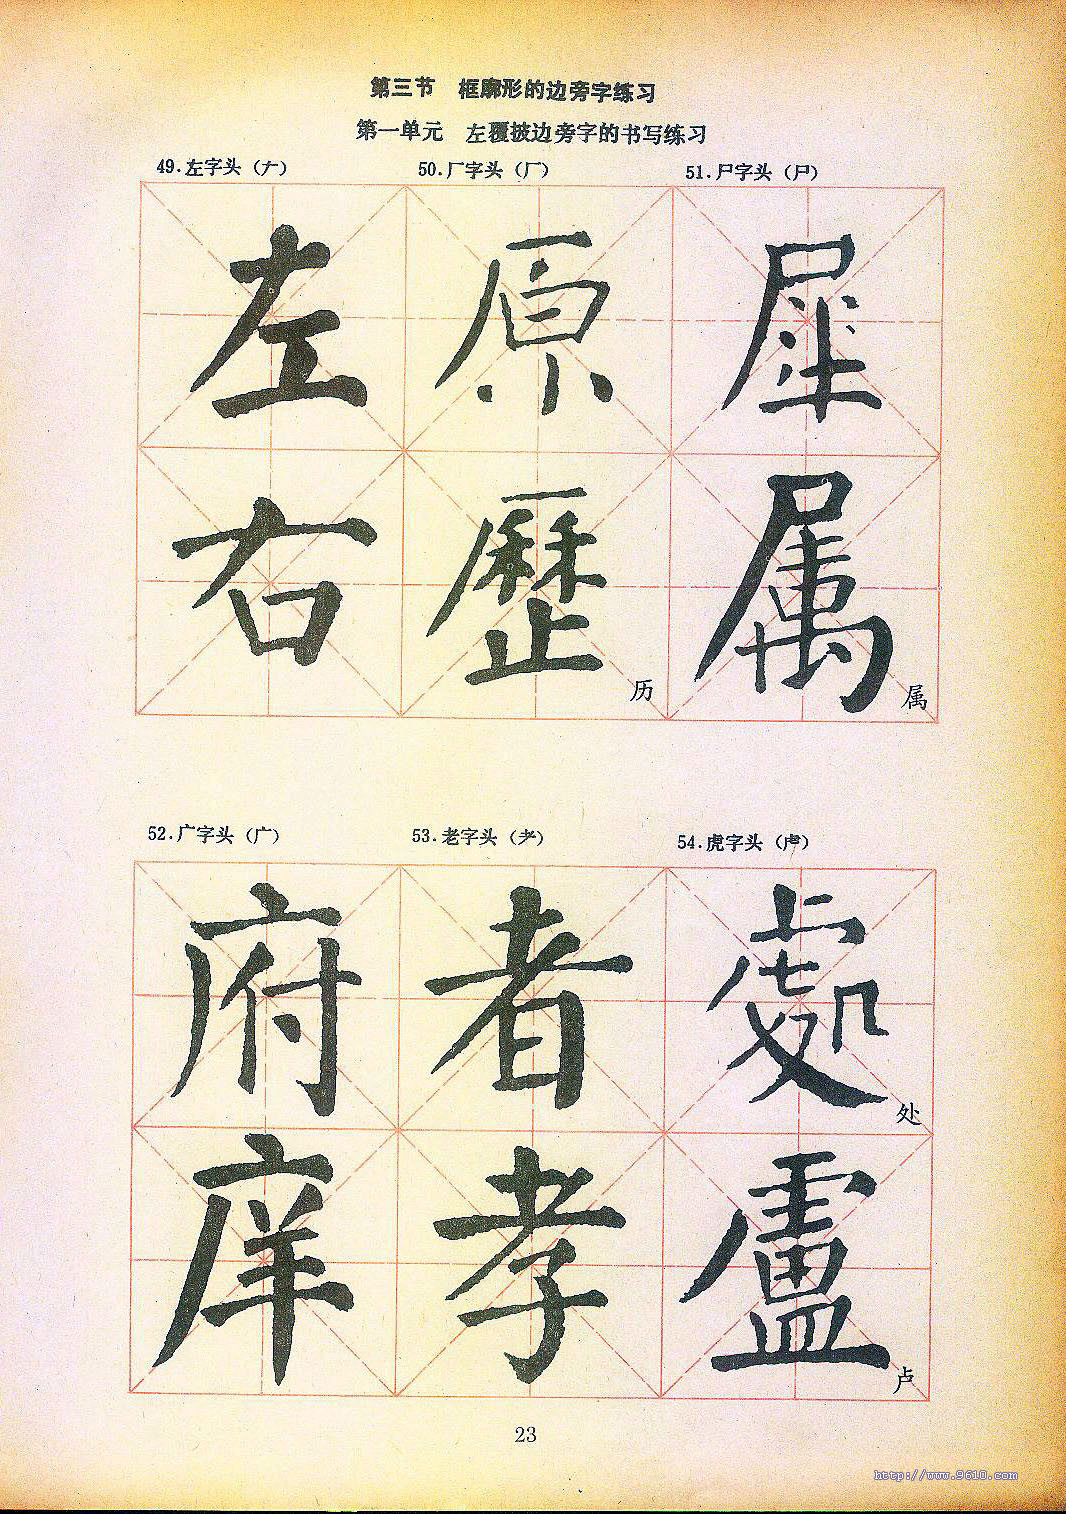 第三节 框廓形的边旁字练习
第一单元 左覆披边旁字的书写练习
49.左字头（𠂇） 50.厂字头（厂） 51.尸字头（尸）
左 原 犀
右 歷 属
历 属
52.广字头（广） 53.老字头（耂） 54.虎字头（虍）
府 者 處
处
庠 孝 盧
卢
23
http://www.9610.com